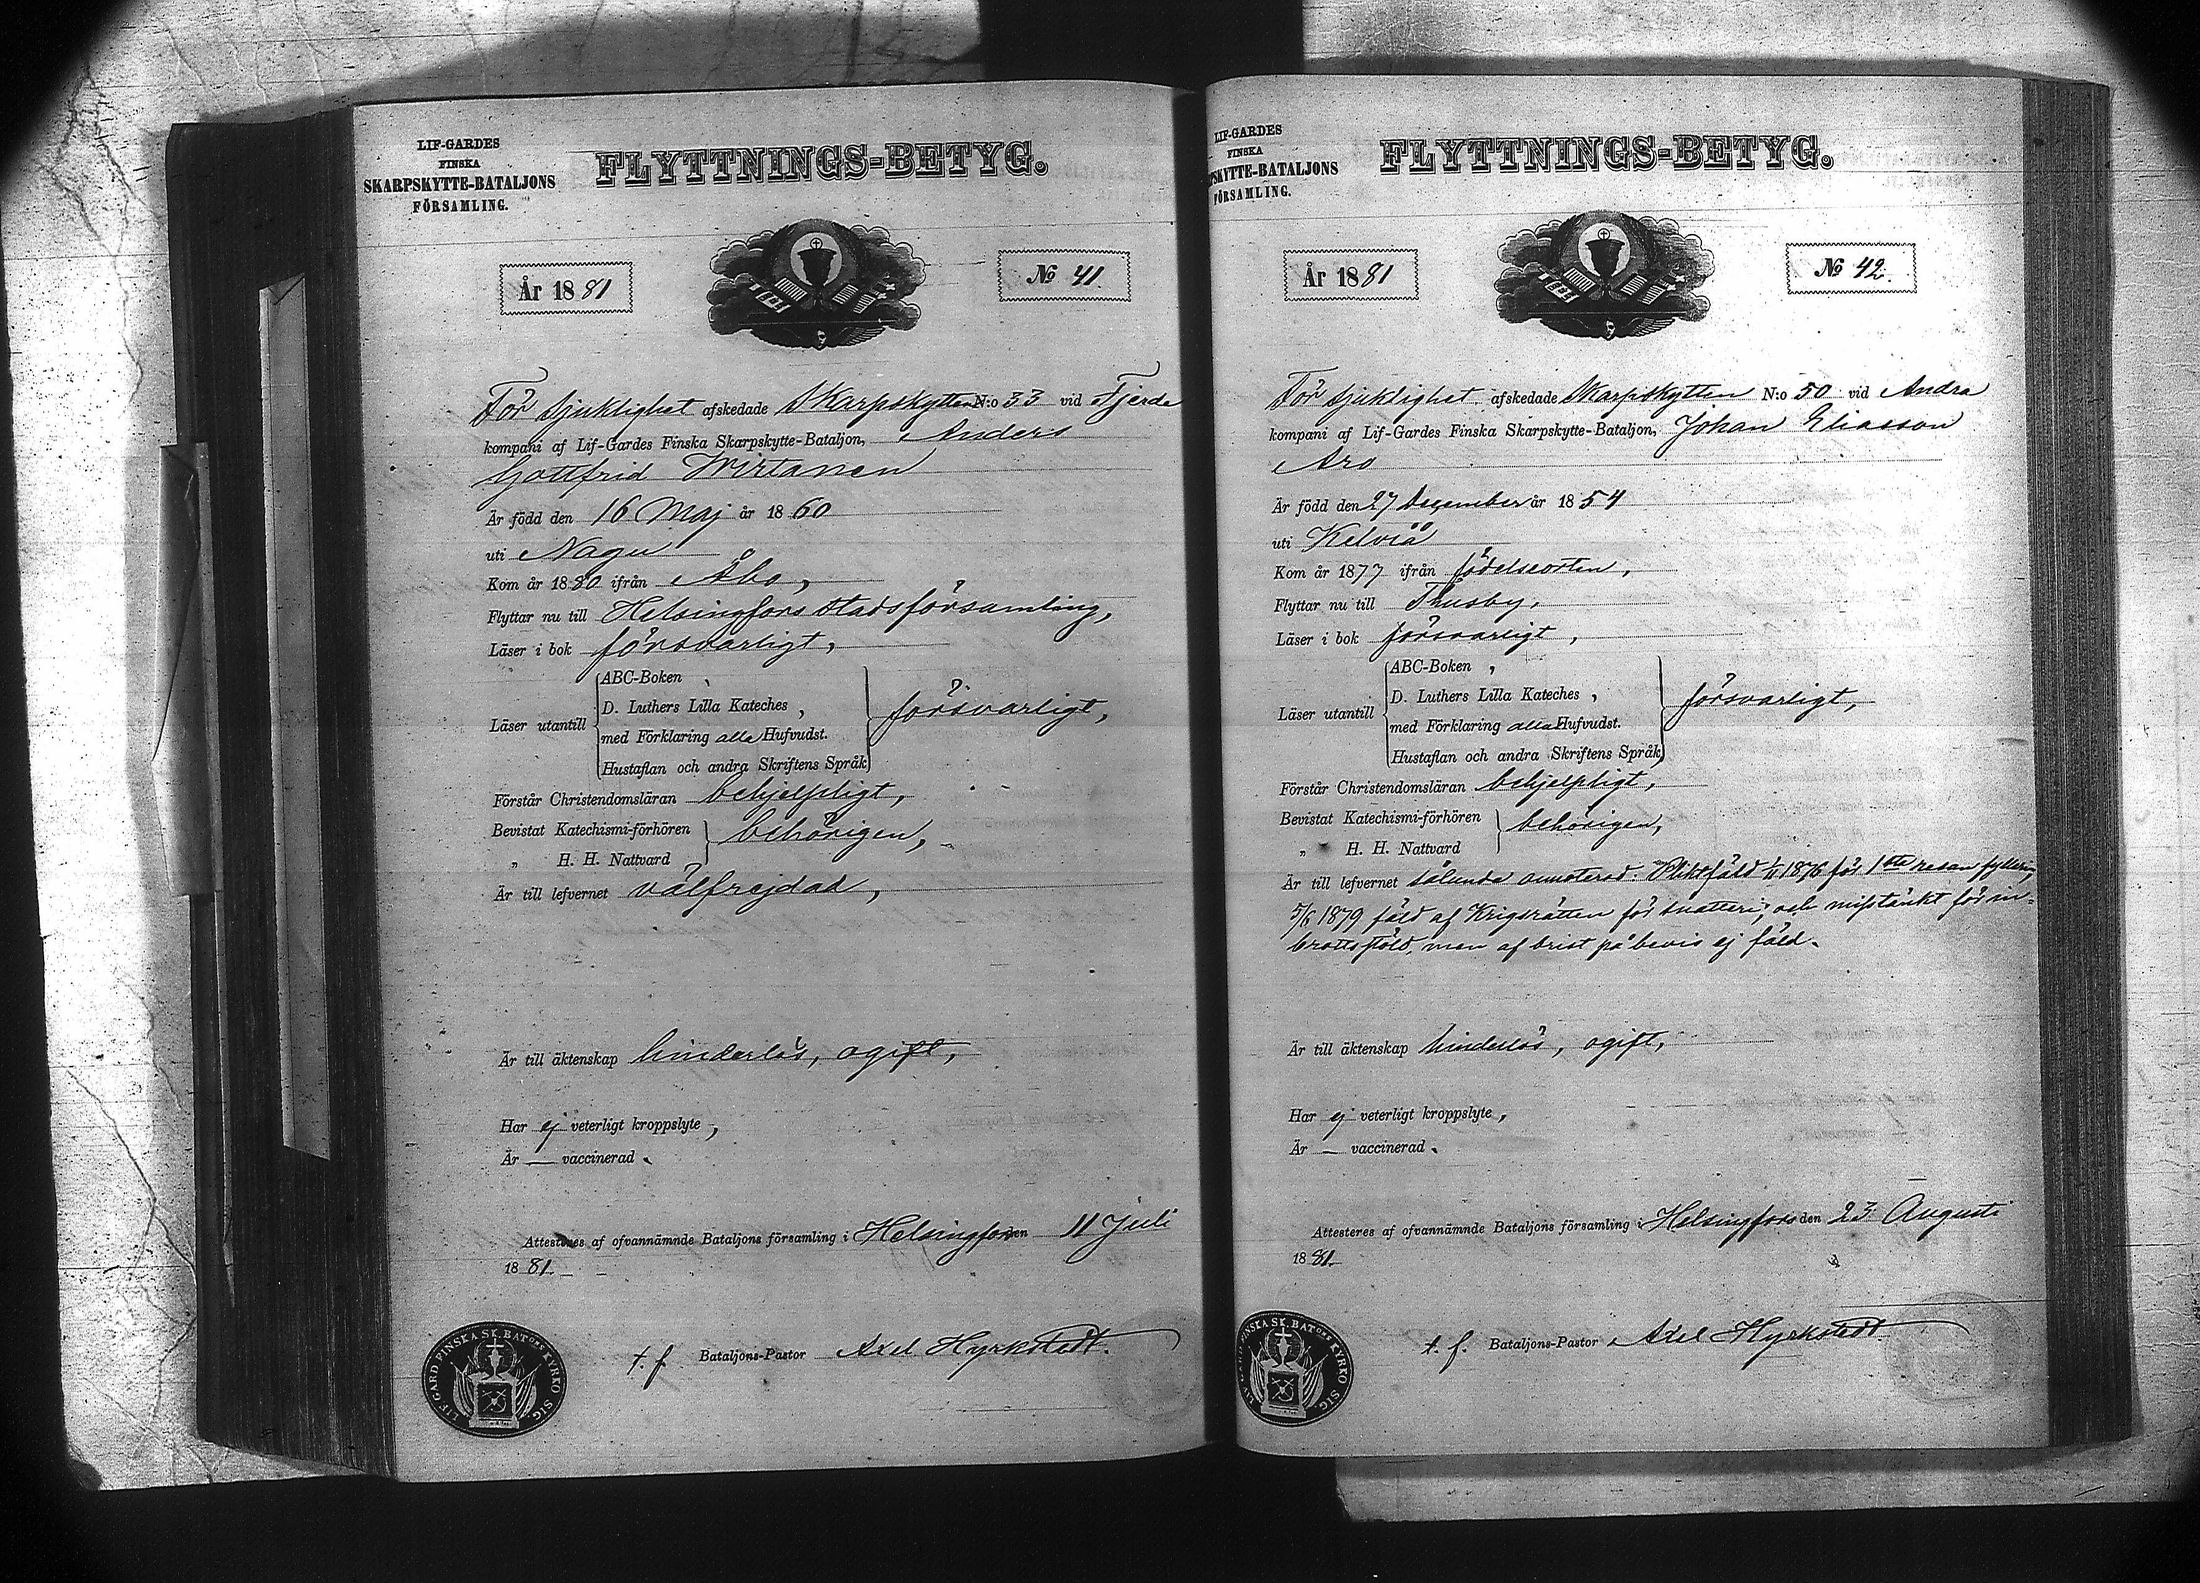 LIF-GARDES
FINSKA
SKARPSKYTTE-BATALJONS
FÖRSAMLING.
FLYTTNINGS-BETYG.
År 1881
No 41.
För sjuklighet afskedade Skarpskytten N:o 33 vid Fjerde
kompani af Lif-Gardes Finska Skarpskytte-Bataljon, Anders
Gottfrid Wirtanen
Är född den 16 Maj år 1860
uti Nagu
Kom år 1880 ifrån Åbo,
Flyttar nu till Helsingfors stadsförsamling,
Läser i bok försvarligt,
Läser utantill
ABC-Boken
D. Luthers Lilla Kateches,
med Förklaring alla Hufvudst.
Hustaflan och andra Skriftens Språk
försvarligt,
Förstår Christendomsläran behjelpligt,
Bevistat Katechismi-förhören
„ H. H. Nattvard
behörigen,
Är till lefvernet välfrejdad,
Är till äktenskap hinderlös, ogift,
Har ej veterligt kroppslyte,
Är — vaccinerad.
Attesteres af ofvannämnde Bataljons församling i Helsingfors den 11 Juli
1881.
t. f. Bataljons-Pastor Axel Hyrkstedt.
LIF-GARD. FINSKA SK. BATONS KYRKO SIG.
LIF-GARDES
FINSKA
PSKYTTE-BATALJONS
FÖRSAMLING.
FLYTTNINGS-BETYG.
År 1881
No 42.
För sjuklighet afskedade Skarpskytten N:o 50 vid Andra
kompani af Lif-Gardes Finska Skarpskytte-Bataljon, Johan Eliasson
Aro
Är född den 27 December år 1854
uti Kelviå
Kom år 1877 ifrån födelseorten,
Flyttar nu till Thusby,
Läser i bok försvarligt,
Läser utantill
ABC-Boken,
D. Luthers Lilla Kateches,
med Förklaring alla Hufvudst.
Hustaflan och andra Skriftens Språk
försvarligt,
Förstår Christendomsläran behjelpligt,
Bevistat Katechismi-förhören
„ H. H. Nattvard
behörigen,
Är till lefvernet sålunda annoterad. Pliktfäld 1876 för 1sta resan fylleri,
1879 fäld af Krigsrätten för snatteri, och misstänkt för in-
brottsstöld, men af brist på bevis ej fäld.
Är till äktenskap hinderlös, ogift,
Har ej veterligt kroppslyte,
Är — vaccinerad.
Attesteres af ofvannämnde Bataljons församling i Helsingfors den 23 Augusti
1881.
t. f. Bataljons-Pastor Axel Hyrkstedt
FINSKA SK. BATONS KYRKO SIG.